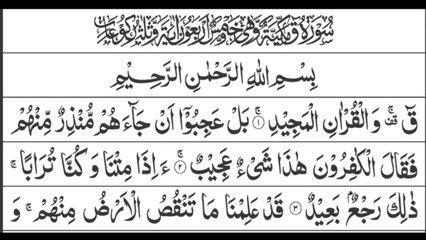 سُوْرَةُ قٓ مَكِّيَّةٌ وَّهِيَ خَمْسٌ وَّاَرْبَعُوْنَ اٰيَةً وَّثَلٰثُ رُكُوْعَاتٍ
بِسْمِ اللهِ الرَّحْمٰنِ الرَّحِيْمِ
قٓ ۚ وَالْقُرْاٰنِ الْمَجِيْدِ ۚ﴿۱﴾ بَلْ عَجِبُوْۤا اَنْ جَآءَهُمْ مُّنْذِرٌ مِّنْهُمْ
فَقَالَ الْكٰفِرُوْنَ هٰذَا شَیْءٌ عَجِيْبٌ ۚ﴿۲﴾ ءَاِذَا مِتْنَا وَكُنَّا تُرَابًا ۚ
ذٰلِكَ رَجْعٌۢ بَعِيْدٌ ﴿۳﴾ قَدْ عَلِمْنَا مَا تَنْقُصُ الْاَرْضُ مِنْهُمْ ۚ وَ